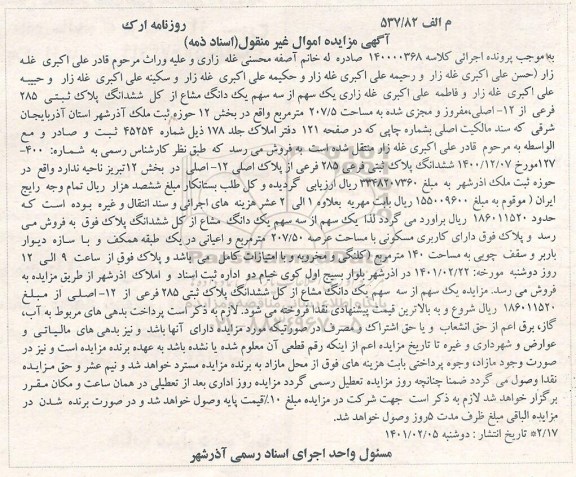 م الف ۵۳۷/۸۲ روزنامه ارک
آگهی مزایده اموال غیر منقول(اسناد ذمه)
به موجب پرونده اجرائی کلاسه ۱۴۰۰۰۰۳۶۸ صادره له خانم آصفه محسنی غله زاری و علیه وراث مرحوم قادر علی اکبری غله
زار (حسن علی اکبری غله زار و رحیمه علی اکبری غله زار و حکیمه علی اکبری غله زار و سکینه علی اکبری غله زار و حبیبه
علی اکبری غله زار و فاطمه علی اکبری غله زاری یک سهم از سه سهم یک دانگ مشاع از کل ششدانگ پلاک ثبتی ۲۸۵
فرعی از ۱۲- اصلی،مفروز و مجزی شده به مساحت ۲۰۷/۵ مترمربع واقع در بخش ۱۲ حوزه ثبت ملک آذرشهر استان آذربایجان
شرقی که سند مالکیت اصلی بشماره چاپی که در صفحه ۱۲۱ دفتر املاک جلد ۱۷۸ ذیل شماره ۴۵۲۵۴ ثبت و صادر و مع
الواسطه به مرحوم قادر علی اکبری غله زار منتقل شده است به فروش می رسد که طبق نظر کارشناس رسمی به شماره: ۴۰۰-
۱۲۷مورخ ۱۴۰۰/۱۲/۰۷ ششدانگ پلاک ثبتی فرعی ۲۸۵ فرعی از پلاک اصلی ۱۲- اصلی در بخش ۱۲تبریز ناحیه ندارد واقع در
حوزه ثبت ملک اذرشهر به مبلغ ۳۳۴۸۲۰۷۳۶۰ ریال ارزیابی گردیده و کل طلب بستانکار مبلغ ششصد هزار ریال تمام وجه رایج
ایران ( موقوم به مبلغ ۱۵۵۰۰۹۶۰۰ ریال بابت مهریه بعلاوه ۱ الی ۲ عشر هزینه های اجرائی و سند انتقال و غیره بوده است که
حدود ۱۸۶۰۱۱۵۲۰ ریال براورد می گردد لذا یک سهم از سه سهم یک دانگ مشاع از کل ششدانگ پلاک فوق به فروش می
رسد و پلاک فوق دارای کاربری مسکونی با مساحت عرصه ۲۰۷/۵۰ مترمربع و اعیانی در یک طبقه همکف و با سازه دیوار
باربر و سقف چوبی به مساحت ۱۴۰ مترمربع (کلنگی و مخروبه و با امتیازات کامل) می باشد و پلاک فوق از ساعت ۹ الی ۱۲
روز دوشنبه مورخه: ۱۴۰۱/۰۲/۲۲ در اذرشهر بلوار بسیج اول کوی خیام دو اداره ثبت اسناد و املاک اذرشهر از طریق مزایده به
فروش می رسد. مزایده یک سهم از سه سهم یک دانگ مشاع از کل ششدانگ پلاک ثبتی ۲۸۵ فرعی از ۱۲- اصلی از مبلغ
۱۸۶۰۱۱۵۲۰ ریال شروع و به بالاترین قیمت پیشنهادی نقدا فروخته می شود. لازم به ذکر است پرداخت بدهی های مربوط به آب،
گاز، برق اعم از حق انشعاب و یا حق اشتراک و مصرف در صورتیکه مورد مزایده دارای آنها باشد و نیز بدهی های مالیاتی و
عوارض و شهرداری و غیره تا تاریخ مزایده اعم از اینکه رقم قطعی آن معلوم شده یا نشده باشد به عهده برنده مزایده است و نیز در
صورت وجود مازاد، وجوه پرداختی بابت هزینه های فوق از محل مازاد به برنده مزایده مسترد خواهد شد و نیم عشر و حق مزایده
نقدا وصول می گردد ضمنا چنانچه روز مزایده تعطیل رسمی گردد مزایده روز اداری بعد از تعطیلی در همان ساعت و مکان مقرر
برگزار خواهد شد لازم به ذکر است جهت شرکت در مزایده مبلغ ۱۰٪قیمت پایه وصول خواهد شد و در صورت برنده شدن در
مزایده الباقی مبلغ ظرف مدت ۵روز وصول خواهد شد.
۲/۱۷* تاریخ انتشار : دوشنبه ۱۴۰۱/۰۲/۰۵
مسئول واحد اجرای اسناد رسمی آذرشهر